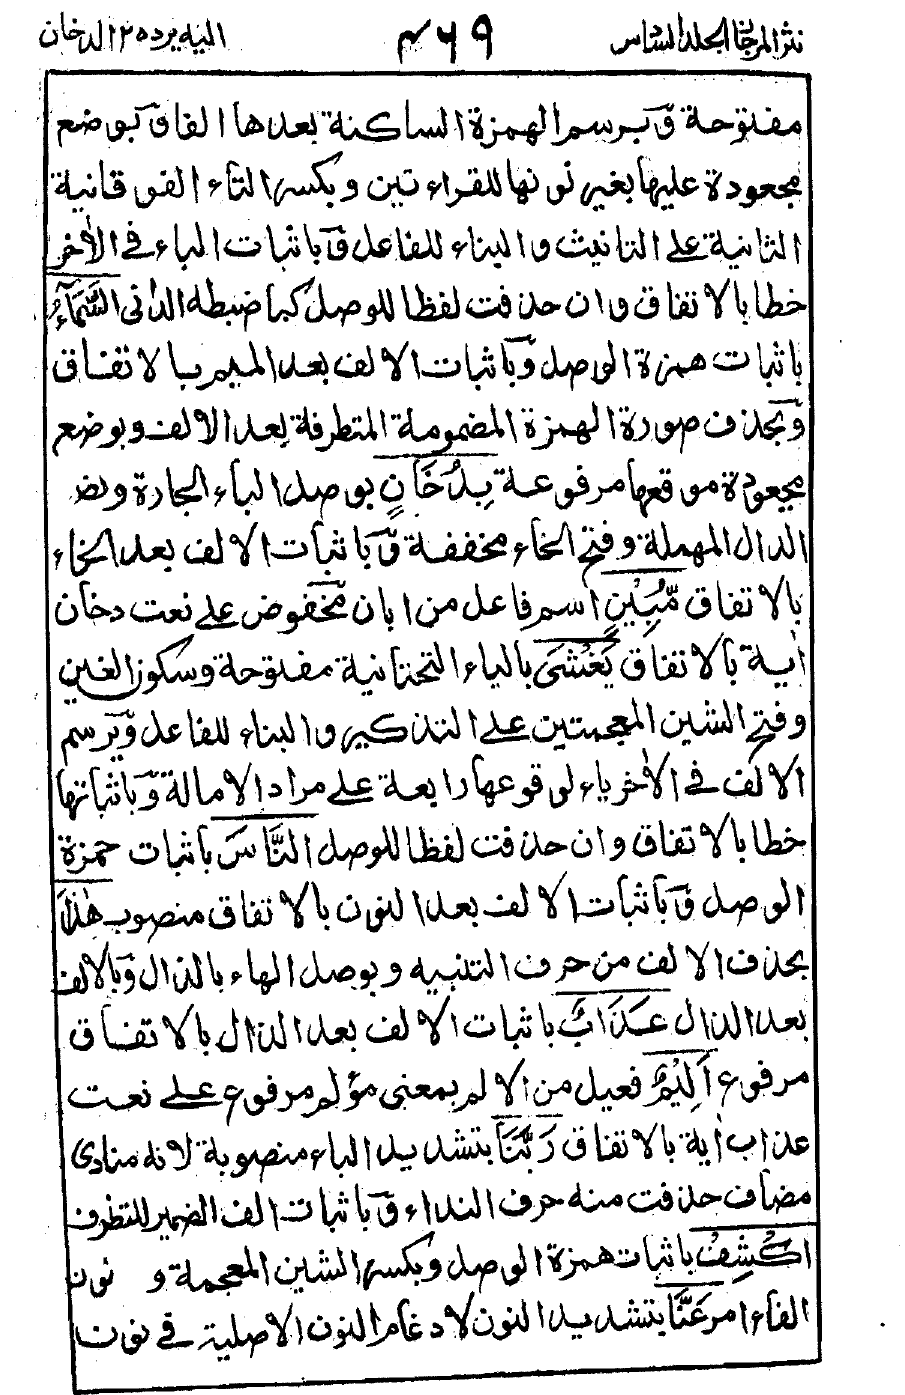 نثر المرجان الجلد السادس ۴۶۹ اليه يرد ٢٥ الدخان
مفتوحة وَبرسم الهمزة الساكنة بعدها الفا وَبوضع
مجعودة عليها بغير لونها للقراءتين وبكسر التاء الفوقانية
الثانية على التانيث والبناء للفاعل وَباثبات الياء في الاٰخر
خطا بالاتفاق وان حذفت لفظا للوصل كما ضبطه الدانى السَّمَآءُ
باثبات همزة الوصل وَباثبات الالف بعد الميم بالاتفاق
وَبحذف صورة الهمزة المضمومة المتطرفة بعد الالف وبوضع
مجعودة موقعها مرفوعة بِدُخَانٍ بوصل الباء الجارة وضم
الدال المهملة وفتح الخاء مخففة وَباثبات الالف بعد الخاء
بالاتفاق مُّبِيْنٍ اسم فاعل من ابان مخفوض على نعت دخان
اٰية بالاتفاق يَغْشَى بالياء التحتانية مفتوحة وسكون الغين
وفتح الشين المعجمتين على التذكير والبناء للفاعل وَبرسم
الالف في الاٰخر ياء لوقوعها رابعة على مراد الامالة وَباثباتها
خطا بالاتفاق وان حذفت لفظا للوصل النَّاسَ باثبات همزة
الوصل وَباثبات الالف بعد النون بالاتفاق منصوب هٰذَا
بحذف الالف من حرف التنبيه وبوصل الهاء بالذال وَبالالف
بعد الذال عَذَابٌ باثبات الالف بعد الذال بالاتفاق
مرفوع اَلِيْمٌ فعيل من الالم بمعنى مؤلم مرفوع على نعت
عذاب اٰية بالاتفاق رَبَّنَا بتشديد الباء منصوبة لانه منادى
مضاف حذفت منه حرف النداء وَباثبات الف الضمير للتطرف
اكْشِفْ باثبات همزة الوصل وبكسر الشين المعجمة و
الفاء امر عَنَّا بتشديد النون لادغام النون الاصلية في نون